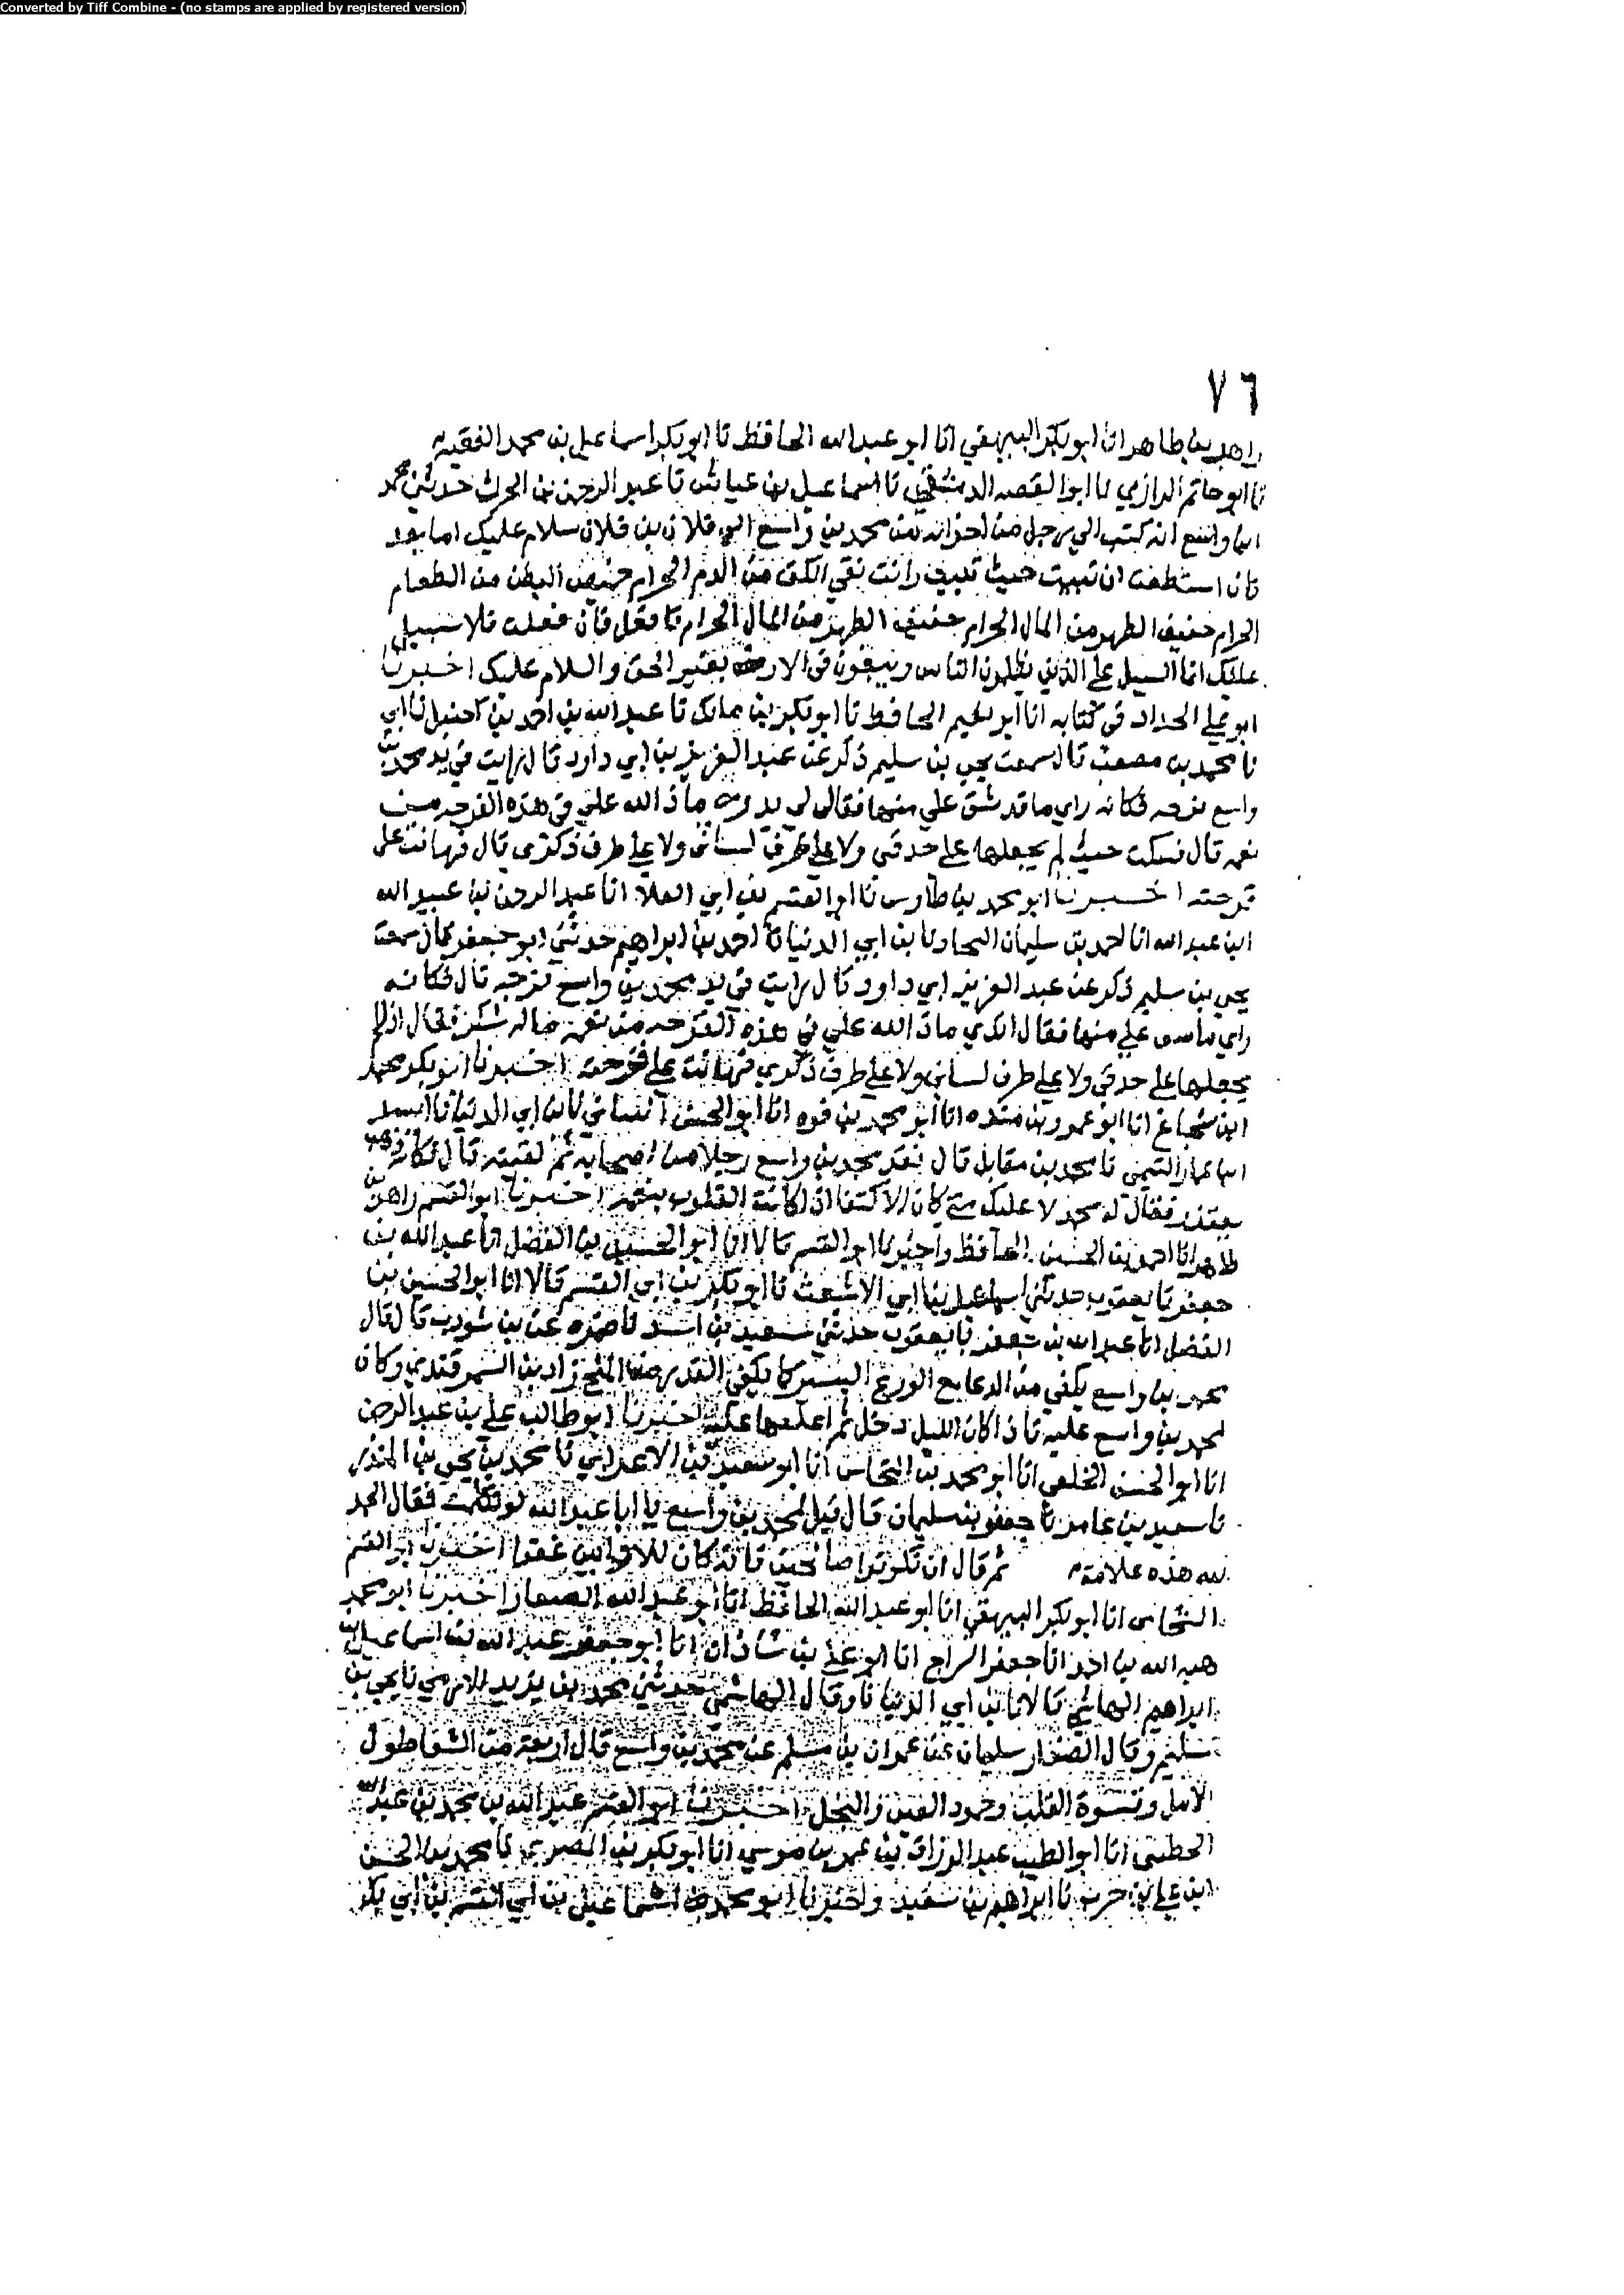 Converted by Tiff Combine - (no stamps are applied by registered version)
٧٦
زاهر بن طاهر انا ابو بكر البيهقي انا ابو عبد الله الحافظ نا ابو بكر اسماعيل بن محمد الفقيه
نا ابو حاتم الرازي نا ابو النضر الدمشقي نا اسماعيل بن عياش نا عبد الرحمن بن الحرث حدثني محمد
ابن واسع انه كتب الى رجل من اخوانه من محمد بن واسع الى فلان بن فلان سلام عليك اما بعد
فان استطعت ان تبيت حيث تبيت وانت نقي الكف من الدم الحرام خميص البطن من الطعام
الحرام خفيف الظهر من المال الحرام خفيف الظهر من المال الحرام فافعل فان فعلت فلا سبيل
عليك انما السبيل على الذين يظلمون الناس ويبغون في الارض بغير الحق والسلام عليك اخبرنا
ابو علي الحداد في كتابه انا ابو نعيم الحافظ نا ابو بكر بن مالك نا عبد الله بن احمد بن حنبل نا ابي
نا محمد بن مصعب قال سمعت يحيى بن سليم ذكر عن عبد العزيز بن ابي داود قال رايت في يد محمد بن
واسع قرحه فكانه راي ما قد شق علي منها فقال لي تدري ماذا لله علي في هذه القرحه من
نعمه قال فسكت حيث لم يجعلها على حدقتي ولا على طرف لساني ولا على طرف ذكري قال فهانت علي
قرحته اخبرنا ابو محمد بن طاوس نا ابو القسم بن ابي العلا انا عبد الرحمن بن عبيد الله
ابن عبد الله انا احمد بن سليمان النجاد نا بن ابي الدنيا نا احمد بن ابراهيم حدثني ابو جعفر قال سمعت
يحيى بن سليم ذكر عن عبد العزيز ابي داود قال رايت في يد محمد بن واسع قرحه قال فكانه
راي ما شق علي منها فقال اتدري ماذا لله علي في هذه القرحه من نعمه قال فسكت فقال اذ لم
يجعلها على حدقتي ولا على طرف لساني ولا على طرف ذكري فهانت علي قرحته اخبرنا ابو بكر محمد
ابن شجاع انا ابو عمرو بن منده انا ابو محمد بن يوه انا ابو الحسن اللنباني نا بن ابي الدنيا نا
ابن عمار التميمي نا محمد بن مقاتل قال فقد محمد بن واسع رجلا من اصحابه ثم لقيته قال فكانه
يعتذر فقال له محمد لا عليك متى كان الالتقا اذا كانت القلوب اخبرنا ابو القسم زاهر بن
طاهر انا احمد بن الحسين الحافظ واخبرنا ابو القسم قالا انا ابو الحسين بن الفضل انا عبد الله بن
جعفر نا يعقوب حدثني اسماعيل بنا ابي الاشعث نا ابو بكر بن ابي القسم قالا انا ابو الحسين بن
الفضل انا عبد الله بن جعفر نا يعقوب حدثني سعيد بن اسد نا ضمره عن بن شوذب قال قال
محمد بن واسع يكفي من الدعا مع الورع اليسير كما يكفي القدر من الملح زاد بن السمرقندي وكان
لمحمد بن واسع عليه فاذا كان الليل دخل ثم اغلقها عليه اخبرنا ابو طالب علي بن عبد الرحمن
انا ابو الحسن الخلعي انا ابو محمد بن النحاس انا ابو سعيد بن الاعرابي نا محمد بن يحيى بن المنذر
نا سعيد بن عامر نا جعفر بن سليمان قال قيل لمحمد بن واسع يا ابا عبد الله لو تكلمت فقال الحمد
لله هذه علامة ثم قال ان تكونوا صالحين فانه كان للاوابين غفورا اخبرنا ابو القسم
الشحامي انا ابو بكر البيهقي انا ابو عبد الله الحافظ انا ابو عبد الله الصفار اخبرنا ابو محمد
هبه الله بن احمد انا جعفر السراج انا ابو علي بن شاذان انا ابو جعفر عبد الله بن اسماعيل بن
ابراهيم الهاشمي قالا نا بن ابي الدنيا نا وقال الهاشمي حدثني محمد بن يزيد الادمي نا يحيى بن
سليم وقال الصفار سليمان عن عمران بن مسلم عن محمد بن واسع قال اربعه من الشقا طول
الامل وقسوة القلب وجمود العين والبخل اخبرنا ابو القسم عبد الله بن محمد بن عبد الله
الخطيبي انا ابو الطيب عبد الرزاق بن عمر بن موسى انا ابو بكر بن المقري نا محمد بن الحسن
ابن علي بن حرب نا ابراهيم بن سعيد واخبرنا ابو محمد بن اسماعيل بن ابي القسم بن ابي بكر